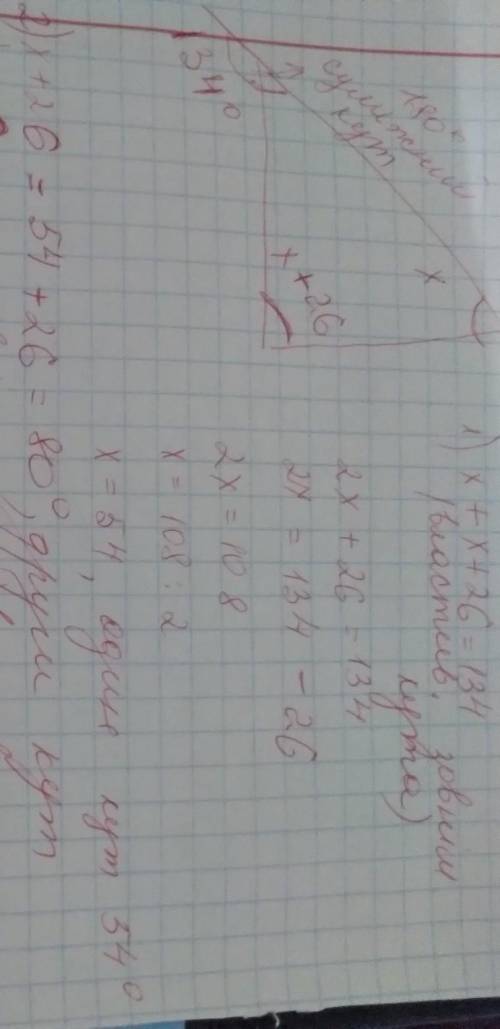 180°
суміжний
кут
134°
x
x+26
1) x + x+26 = 134
(властив. зовніш
кута)
2x + 26 = 134
2x = 134 - 26
2x = 108
x = 108 : 2
x = 54, один кут 54°
2) x+26 = 54+26 = 80°, другий кут